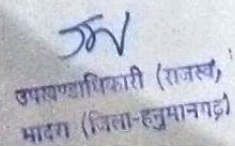 उपाखण्डाधिकारी (राजस्व)
भादरा (जिला-हनुमानगढ़)